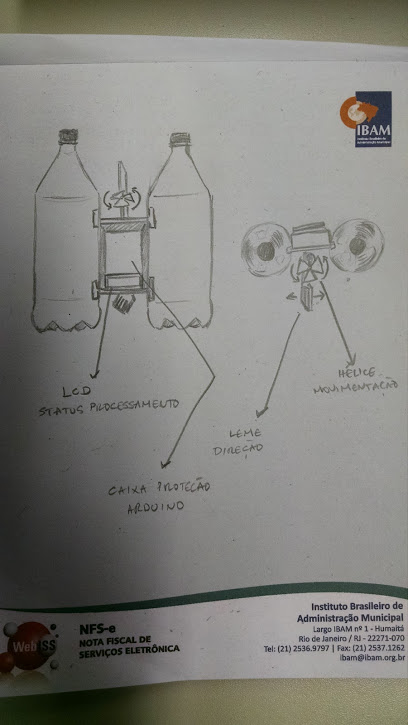 IBAM
Instituto Brasileiro de
Administração Municipal
LCD
STATUS PROCESSAMENTO
CAIXA PROTEÇÃO
ARDUINO
LEME
DIREÇÃO
HÉLICE
MOVIMENTAÇÃO
WebISS
NFS-e
NOTA FISCAL DE
SERVIÇOS ELETRÔNICA
Instituto Brasileiro de
Administração Municipal
Largo IBAM nº 1 - Humaitá
Rio de Janeiro / RJ - 22271-070
Tel: (21) 2536.9797 | Fax: (21) 2537.1262
ibam@ibam.org.br